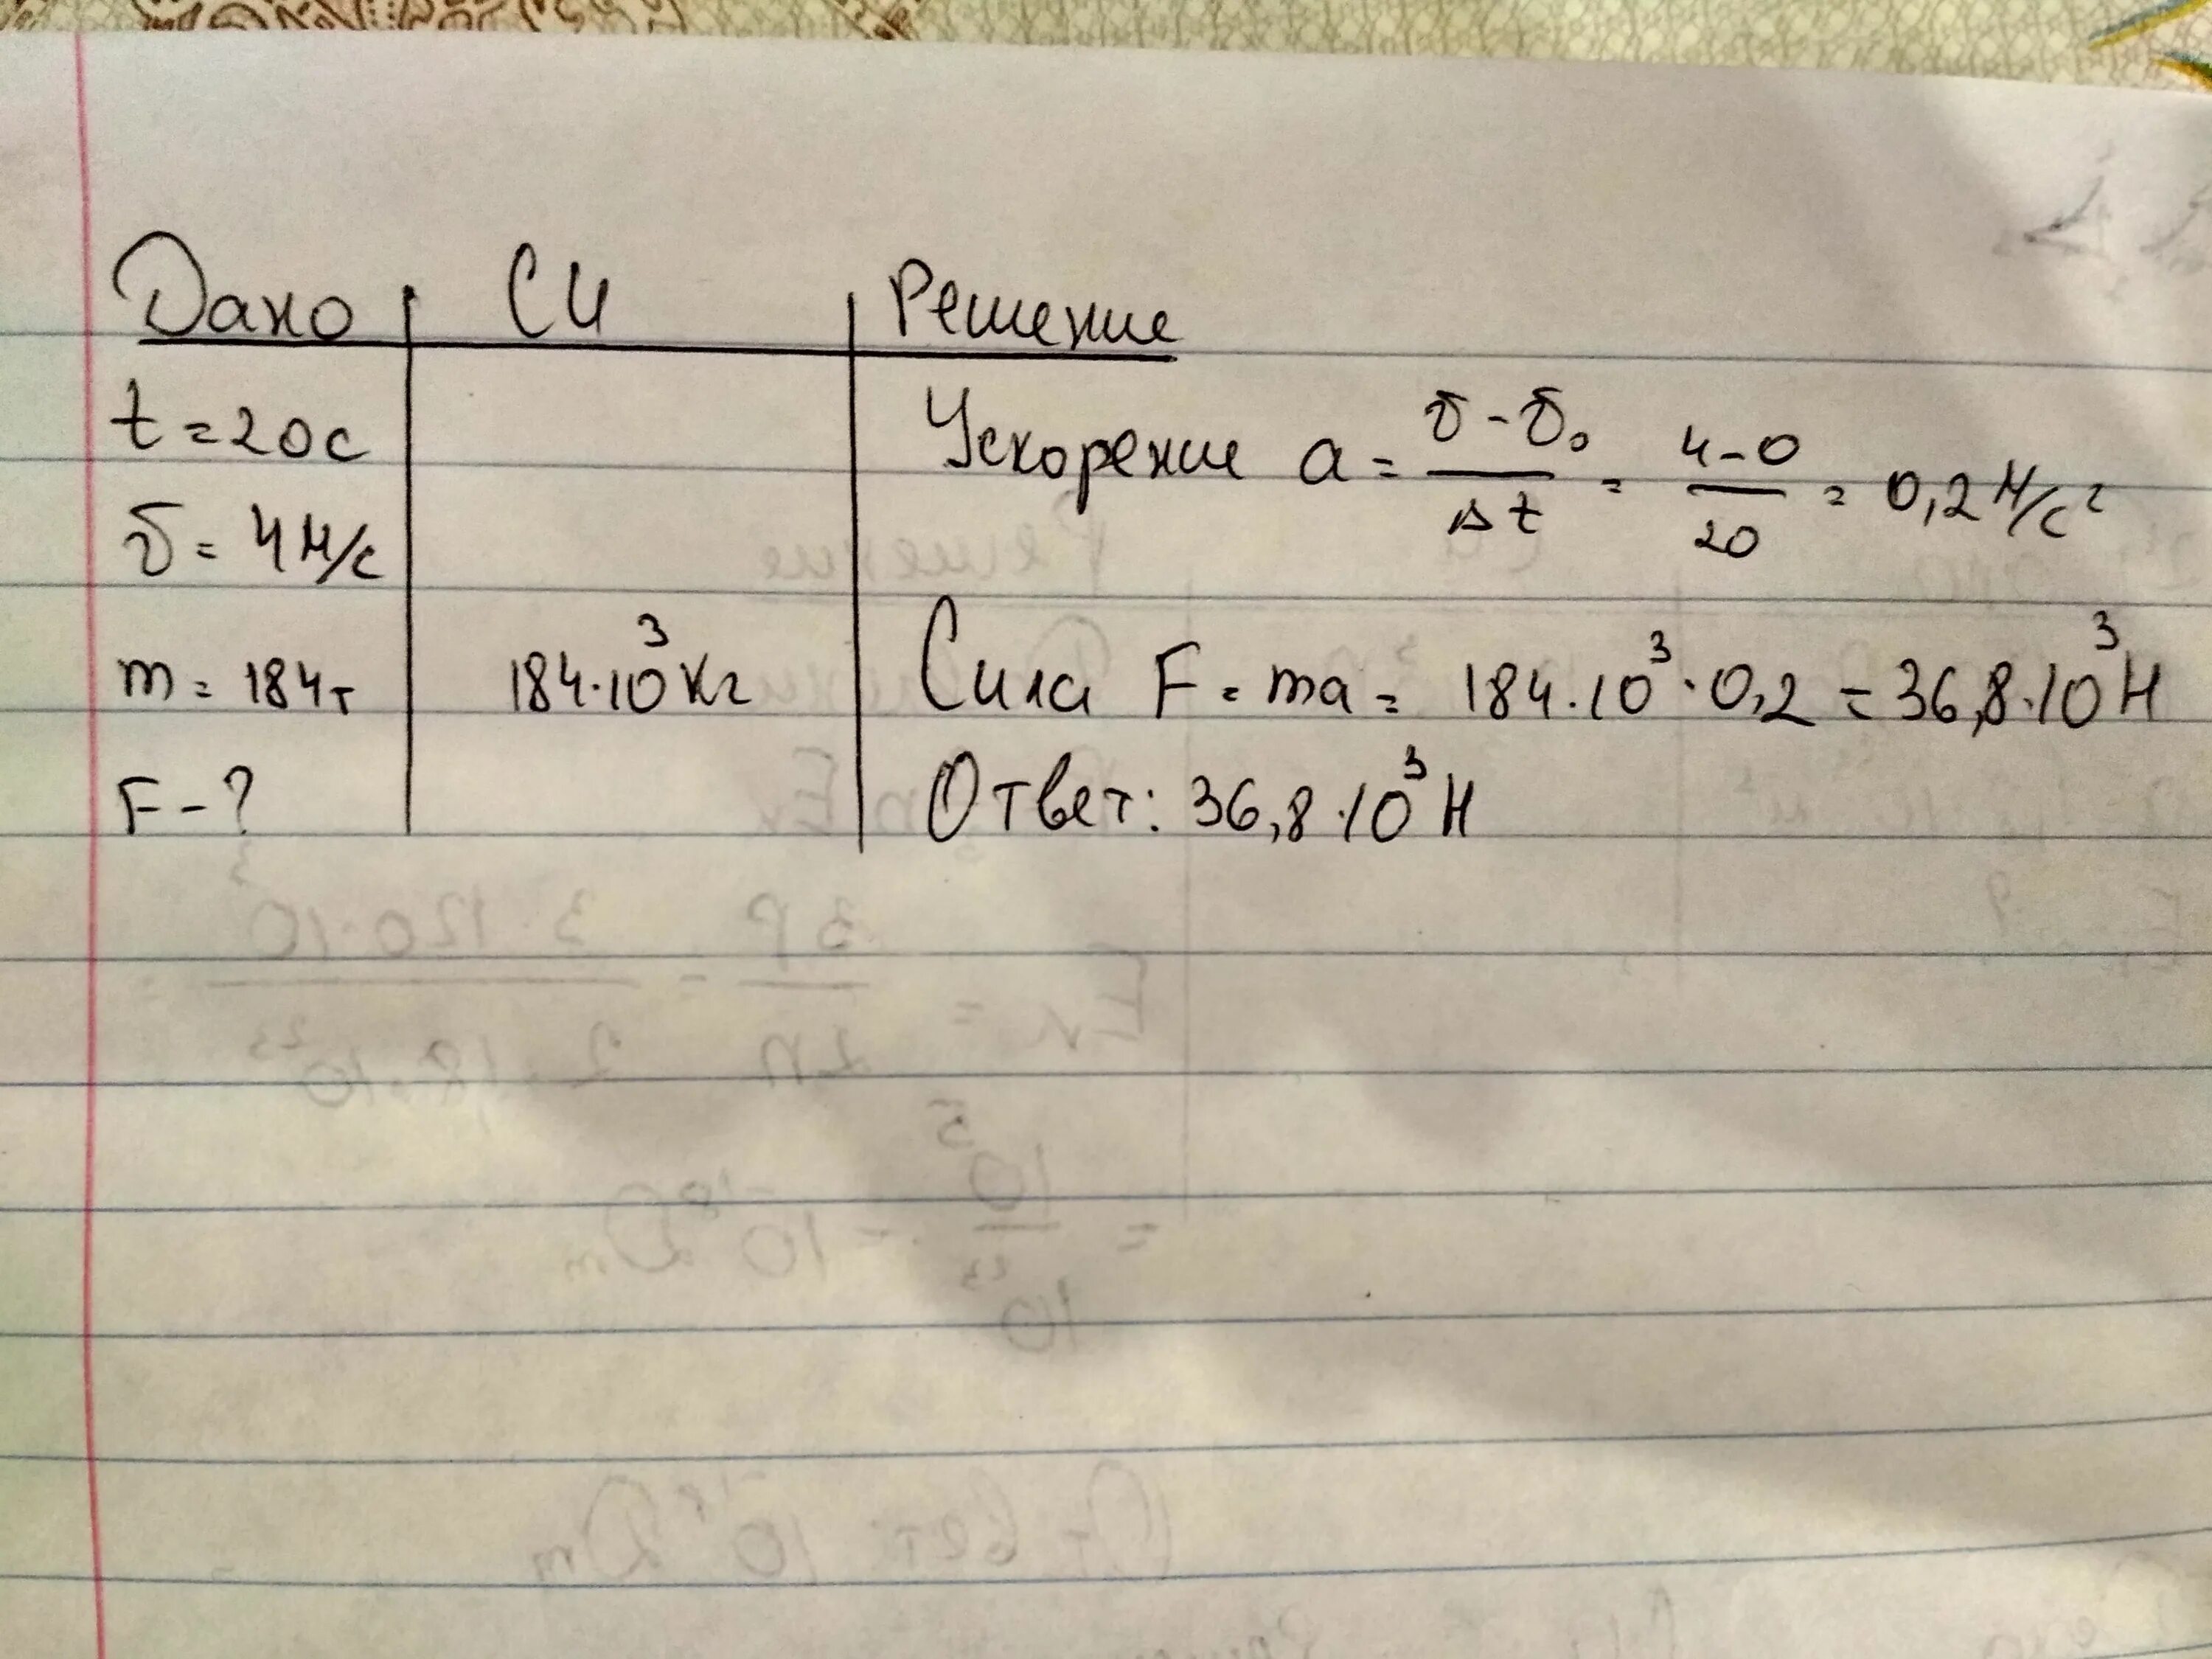 Дано СИ Решение
t = 20с Ускорение a = (v - v₀)/Δt = (4-0)/20 = 0,2 м/с²
v = 4 м/с
m = 184т 184·10³ кг Сила F = ma = 184·10³·0,2 = 36,8·10³ Н
F - ? Ответ: 36,8·10³ Н